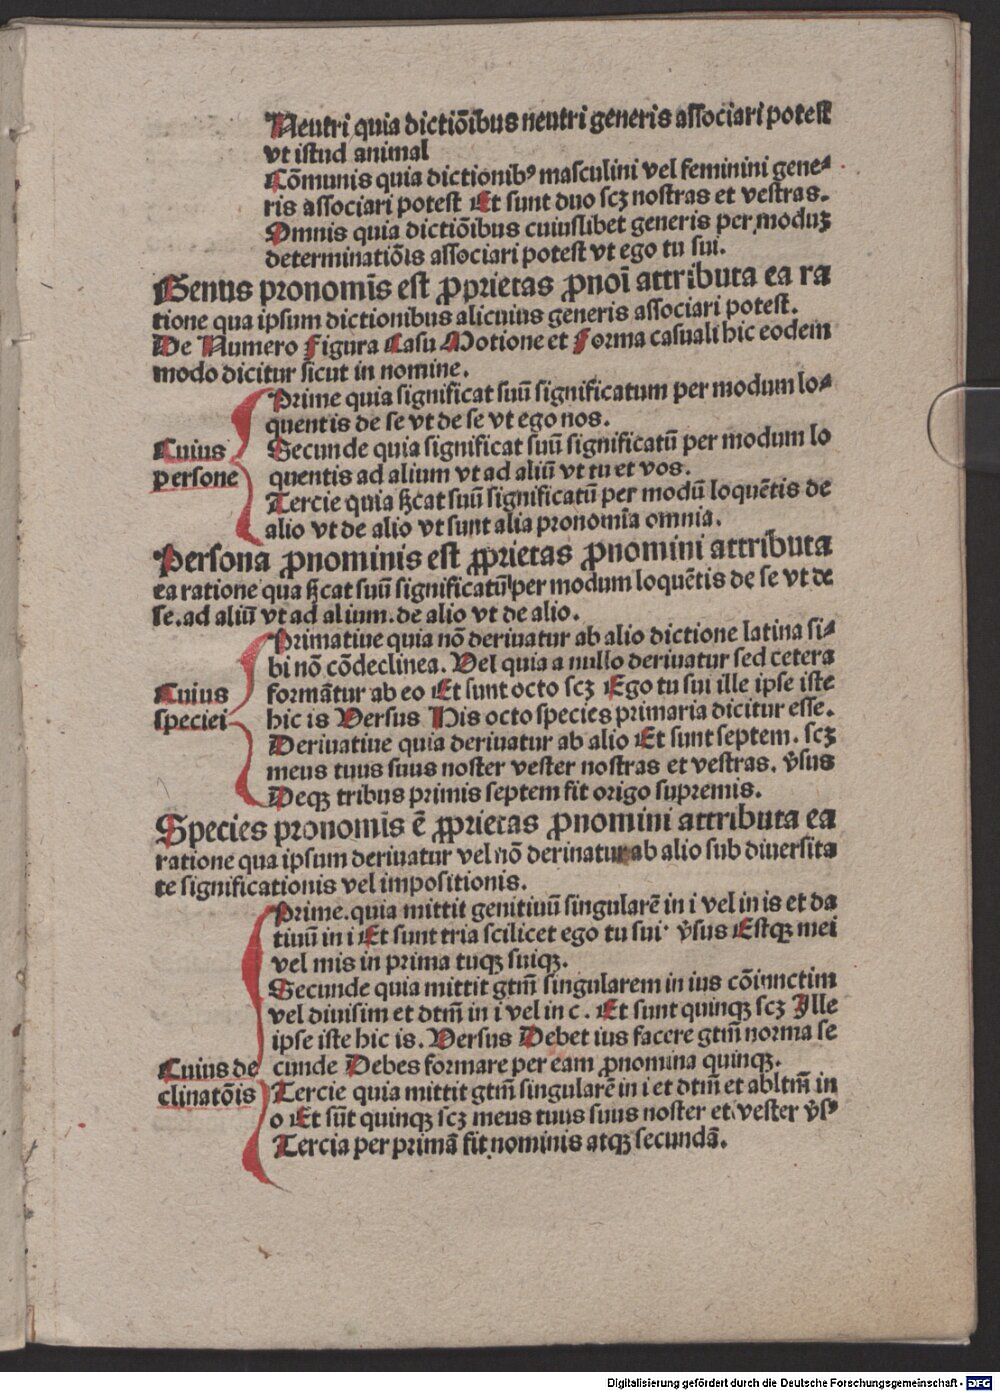 Neutri quia dictiōibus neutri generis associari potest
vt istud animal
Cōmunis quia dictionibꝰ masculini vel feminini gene⸗
ris associari potest Et sunt duo scꝫ nostras et vestras.
Omnis quia dictiōibus cuiuslibet generis per moduꝫ
determinatiōis associari potest vt ego tu sui.
Genus pronomīs est ꝓprietas ꝓnoī attributa ea ra
tione qua ipsum dictionibus alicuius generis associari potest.
De Numero Figura Casu Motione et Forma casuali hic eodem
modo dicitur sicut in nomine.
Prime quia significat suū significatum per modum lo⸗
quentis de se vt de se vt ego nos.
Cuius
persone
Secunde quia significat suū significatū per modum lo
quentis ad alium vt ad aliū vt tu et vos.
Tercie quia ßcat suū significatū per modū loquētis de
alio vt de alio vt sunt alia pronomīa omnia.
Persona ꝓnominis est ꝓprietas ꝓnomini attributa
ea ratione qua ßcat suū significatū per modum loquētis de se vt de
se. ad aliū vt ad alium. de alio vt de alio.
Primatiue quia nō deriuatur ab alio dictione latina si⸗
bi nō cōdeclinea. Vel quia a nullo deriuatur sed cetera
Cuius
speciei
formātur ab eo Et sunt octo scꝫ Ego tu sui ille ipse iste
hic is Versus His octo species primaria dicitur esse.
Deriuatiue quia deriuatur ab alio Et sunt septem. scꝫ
meus tuus suus noster vester nostras et vestras. v̄sus
Deqꝫ tribus primis septem fit origo supremis.
Species pronomīs ē ꝓprietas ꝓnomini attributa ea
ratione qua ipsum deriuatur vel nō deriuatur ab alio sub diuersita
te significationis vel impositionis.
Prime. quia mittit genitiuū singularē in i vel in is et da
tiuū in i Et sunt tria scilicet ego tu sui· v̄sus Estqꝫ mei
vel mis in prima tuqꝫ suiqꝫ.
Secunde quia mittit gtm̄ singularem in ius cōiunctim
vel diuisim et dtm̄ in i vel in c. Et sunt quinqꝫ scꝫ Ille
ipse iste hic is. Versus Debet ius facere gtm̄ norma se
Cuius de
clinatōis
cunde Debes formare per eam ꝓnomina quinqꝫ.
Tercie quia mittit gtm̄ singularē in i et dtm̄ et abltm̄ in
o Et sūt quinqꝫ scꝫ meus tuus suus noster et vester v̄sꝰ
Tercia per primā fit nominis atqꝫ secundā.
Digitalisierung gefördert durch die Deutsche Forschungsgemeinschaft - DFG